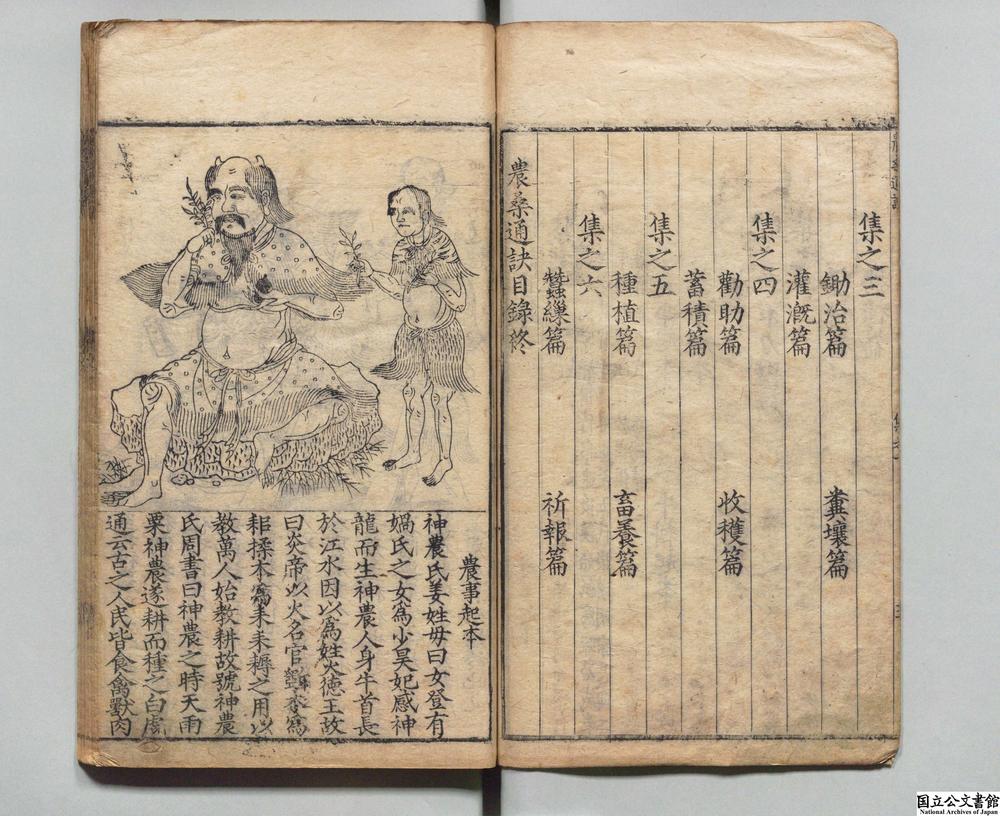 集之三
鋤治篇 糞壤篇
灌漑篇
集之四
勸助篇 收穫篇
蓄積篇
集之五
種植篇 畜養篇
集之六
蠶繅篇 祈報篇
農桑通訣目錄終
農事起本
神農氏姜姓母曰女登有
媧氏之女為少昊妃感神
龍而生神農人身牛首長
於江水因以為姓火德王故
曰炎帝以火名官斵木為
耜揉木為耒耒耨之用以
教萬人始教耕故號神農
氏周書曰神農之時天雨
粟神農遂耕而種之白虎
通云古之人民皆食禽獸肉
国立公文書館
National Archives of Japan